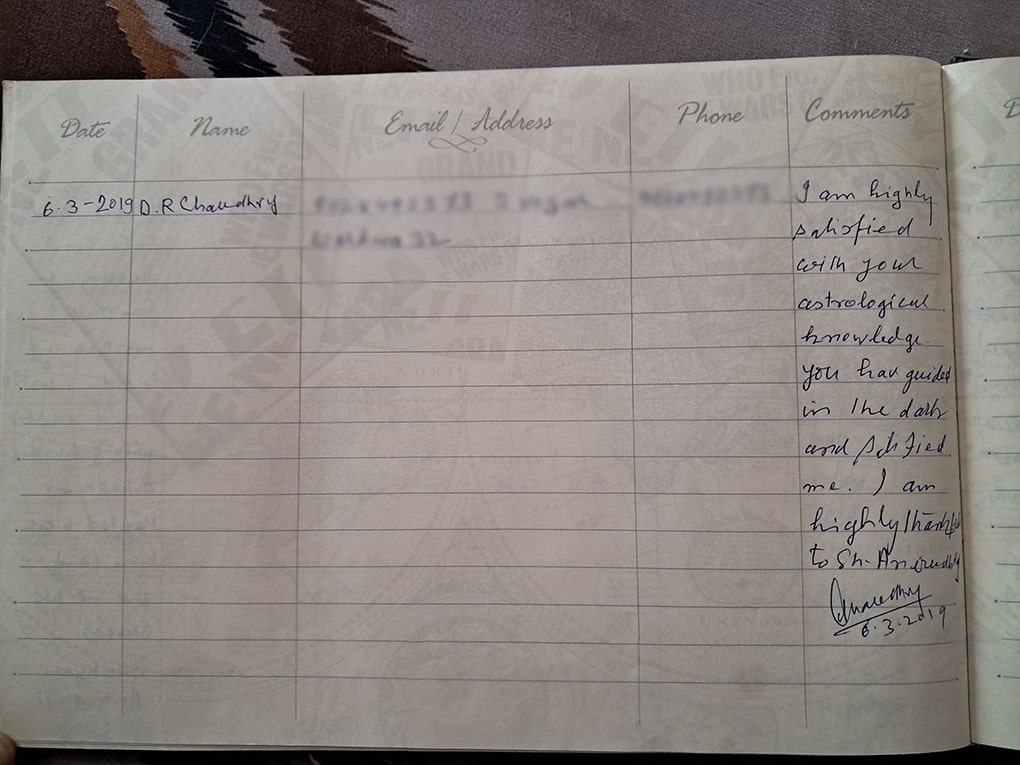 Date Name Email / Address Phone Comments
6-3-2019 D.R Chaudhry I am highly
satisfied
with your
astrological
knowledge.
you hav guided
in the dark
and satified
me. I am
highly
to Sh. Anirudh
Chaudhry
6.3.2019